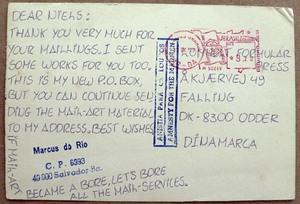 DEAR NIELS:
THANK YOU VERY MUCH FOR
YOUR MAILINGS. I SENT
SOME WORKS FOR YOU TOO.
THIS IS MY NEW P.O. BOX,
BUT YOU CAN CONTINUE SEN
DING THE MAIL-ART MATERIAL
TO MY ADDRESS. BEST WISHES
Marcus do Rio
C. P. 6393
40 000 Salvador Ba.
IF MAIL-ART
BECAME A BORE, LET'S BORE
ALL THE MAIL-SERVICES.
ANISTIA PARA OS LOUCOS
AMNESTY FOR THE MADMEN
FORMULAR
PRESS
AKJÆRVEJ 49
FALLING
DK-8300 ODDER
DINAMARCA